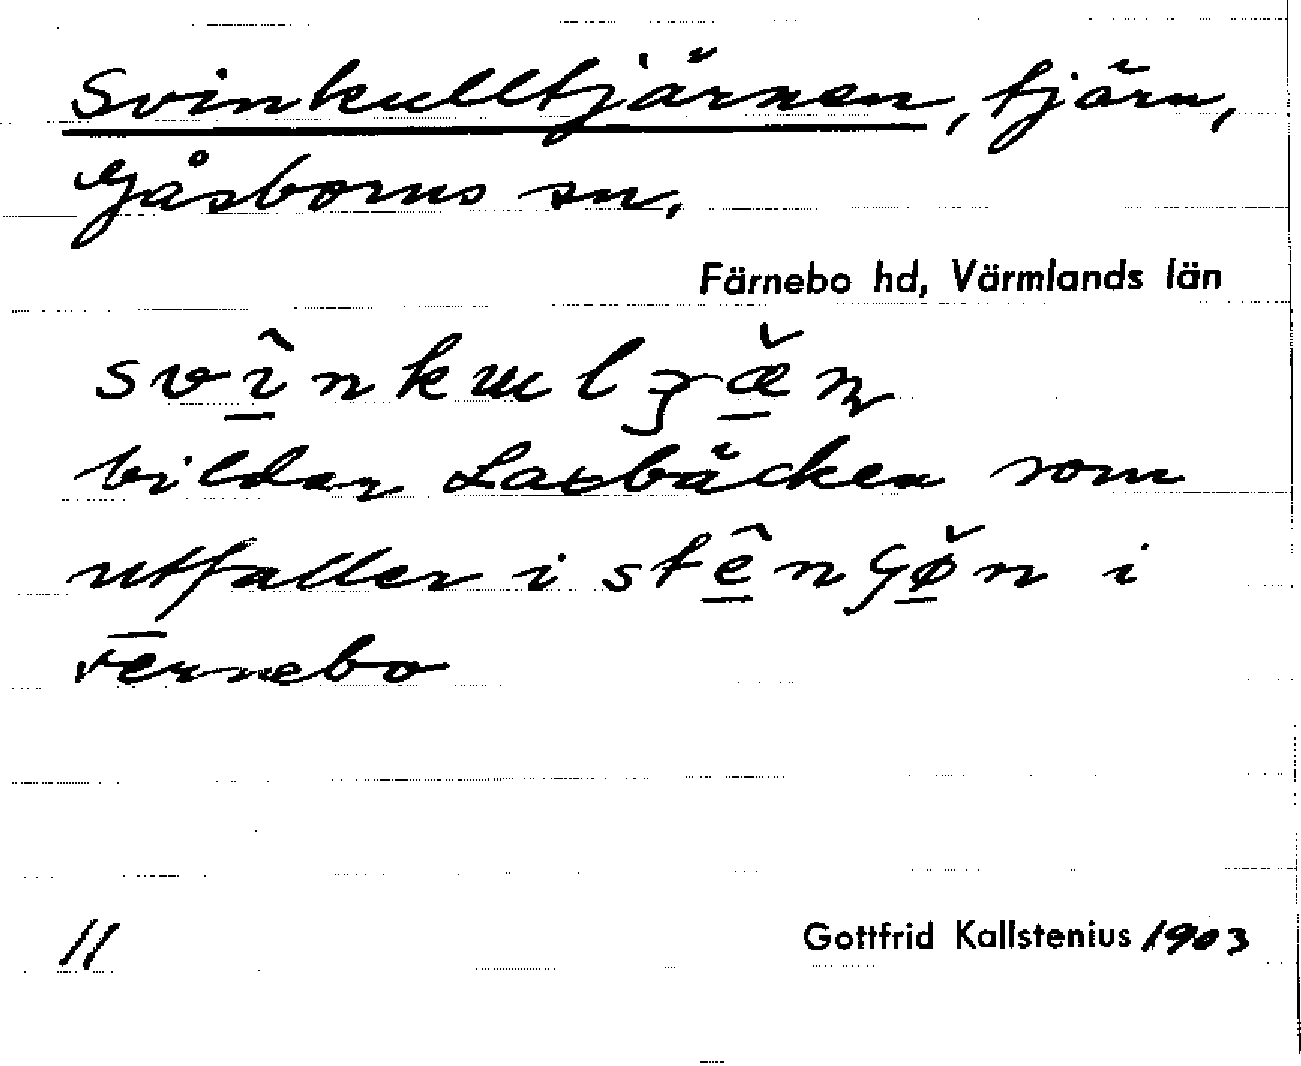 Svinkulltjärnen, tjärn,
Gåsborns sn.
Färnebo hd, Värmlands län
svı̂nkulʒæ̌ɳ
bildar Laxbäcken som
utfaller i stêngø̌n i
Fernebo
11
Gottfrid Kallstenius 1903